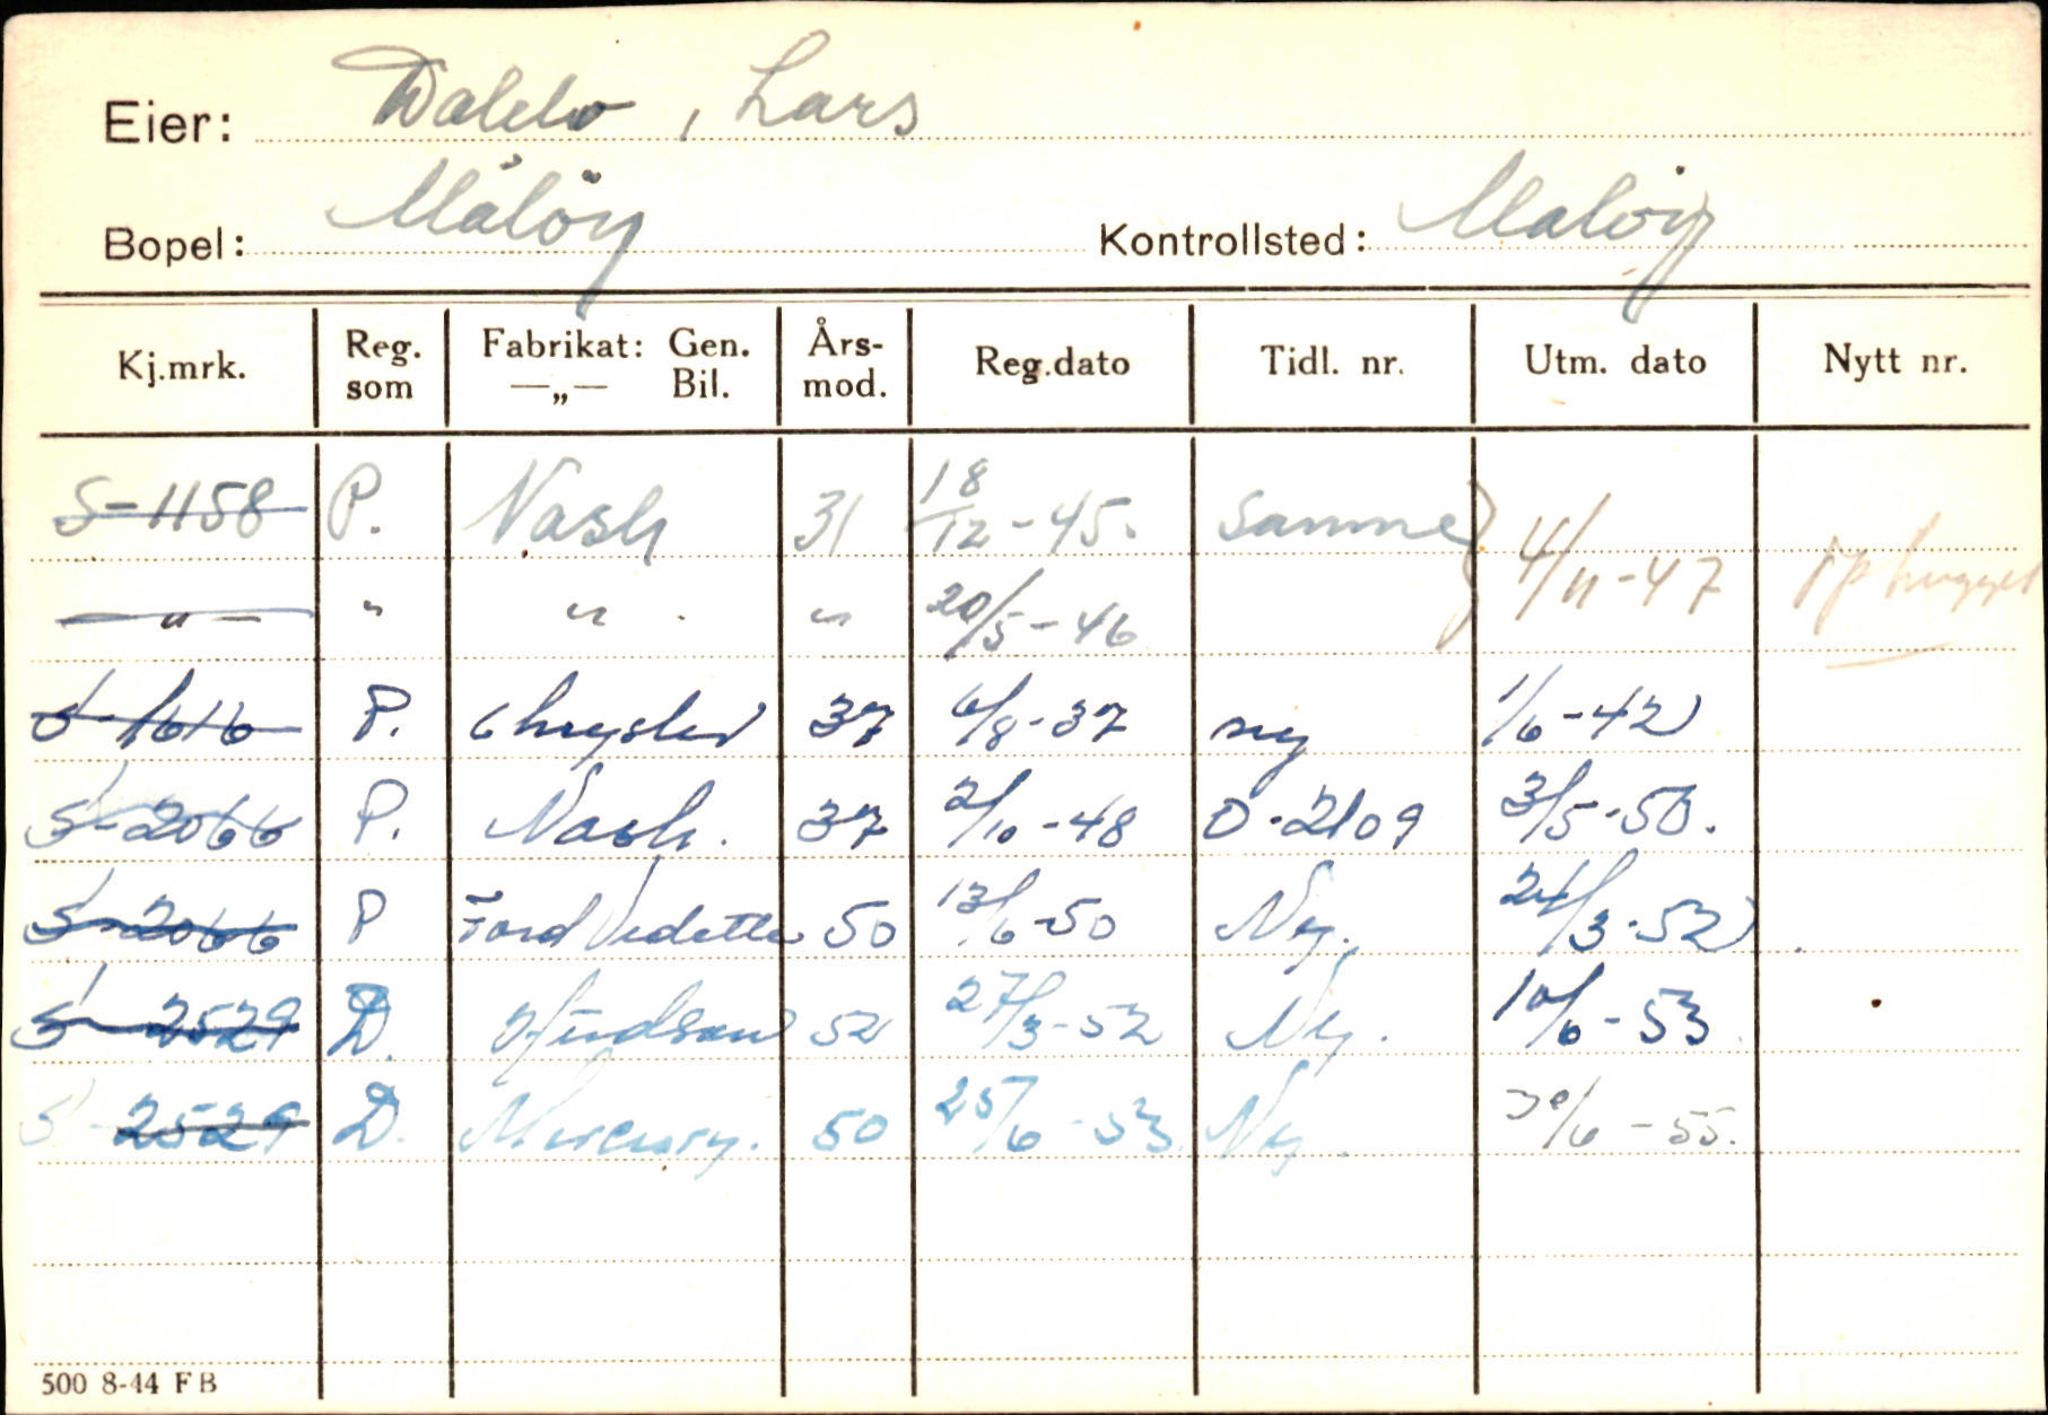 Eier: Lars
Bopel: Måløy Kontrollsted: Måløy
Kj.mrk. Reg. som Fabrikat: Gen. —„— Bil. Års- mod. Reg.dato Tidl. nr. Utm. dato Nytt nr.
S-1158 P. Nash 31 18/12-45. Samme 4/11-47 opphugget
—"— " " " 20/5-46
S-1616 P. Chrysler 37 6/8-37 ny 1/6-42
S-2066 P. Nash. 37 2/10-48 D-2109 3/5-50.
S-2066 P Ford Vedette 50 13/6-50 Ny. 24/3-52
S-2529 D. Hudson 52 27/3-52 Ny. 10/6-53
S-2529 D. Mercury. 50 25/6-53 Ny. 30/6-55.
500 8-44 FB